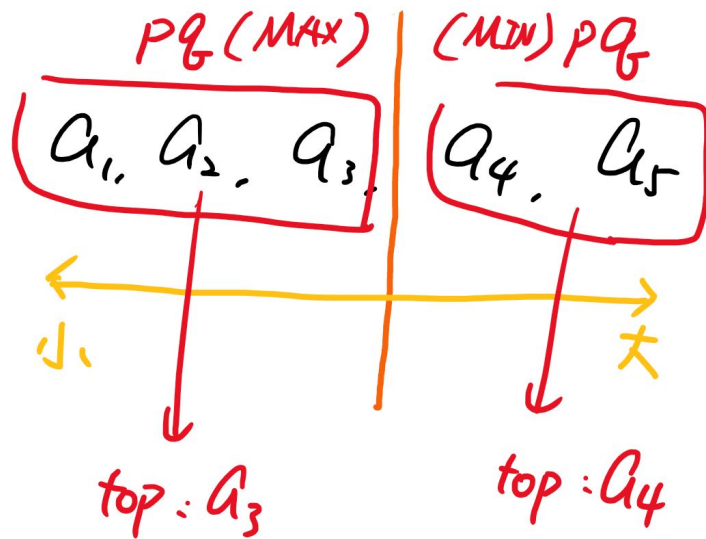 pq (MAX) (MIN) pq
a₁, a₂, a₃, a₄, a₅
小 大
top: a₃ top: a₄